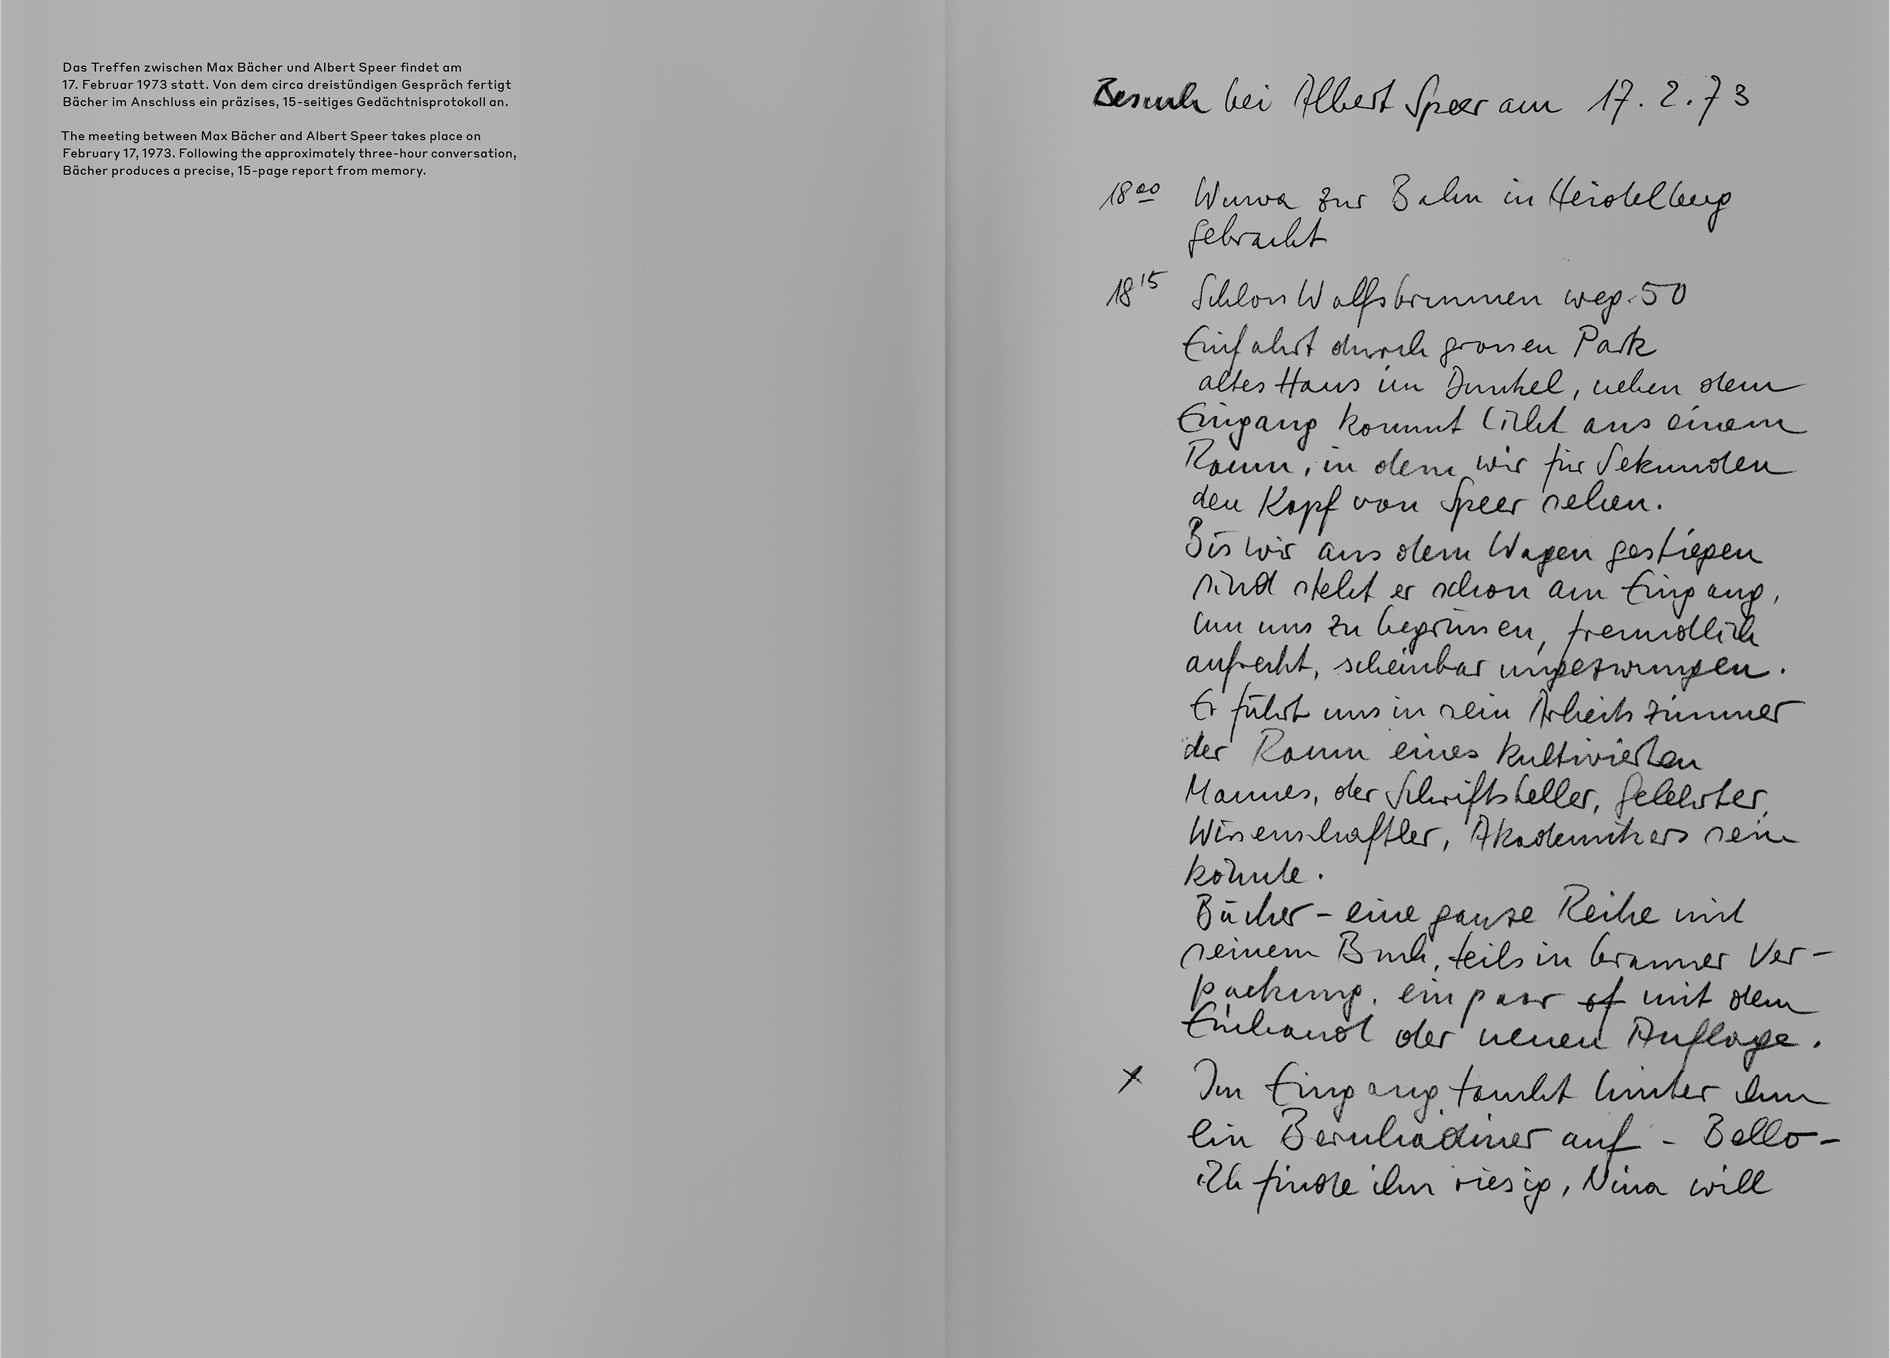 Das Treffen zwischen Max Bächer und Albert Speer findet am
17. Februar 1973 statt. Von dem circa dreistündigen Gespräch fertigt
Bächer im Anschluss ein präzises, 15-seitiges Gedächtnisprotokoll an.
The meeting between Max Bächer and Albert Speer takes place on
February 17, 1973. Following the approximately three-hour conversation,
Bächer produces a precise, 15-page report from memory.
Besuch bei Albert Speer am 17.2.73
18⁰⁰ zur Bahn in Heidelberg
gebracht
18¹⁵ Schloss Wolfsbrunnenweg 50
Einfahrt durch grossen Park
altes Haus im Dunkel, neben dem
Eingang kommt Licht aus einem
Raum, in dem wir für Sekunden
den Kopf von Speer sehen.
Bis wir aus dem Wagen gestiegen
sind steht er schon am Eingang,
um uns zu begrüssen, freundlich
aufrecht, scheinbar ungezwungen.
Er führt uns in sein Arbeitszimmer
der Raum eines kultivierten
Mannes, der Schriftsteller, Gelehrter,
Wissenschaftler, Akademikers sein
könnte.
Bücher – eine ganze Reihe mit
seinem Buch, teils in brauner Ver-
packung, ein paar mit dem
Einband der neuen Auflage.
x Im Eingang taucht hinter ihm
ein Bernhadiner auf – Bello –
ich finde ihn riesig, Nina will